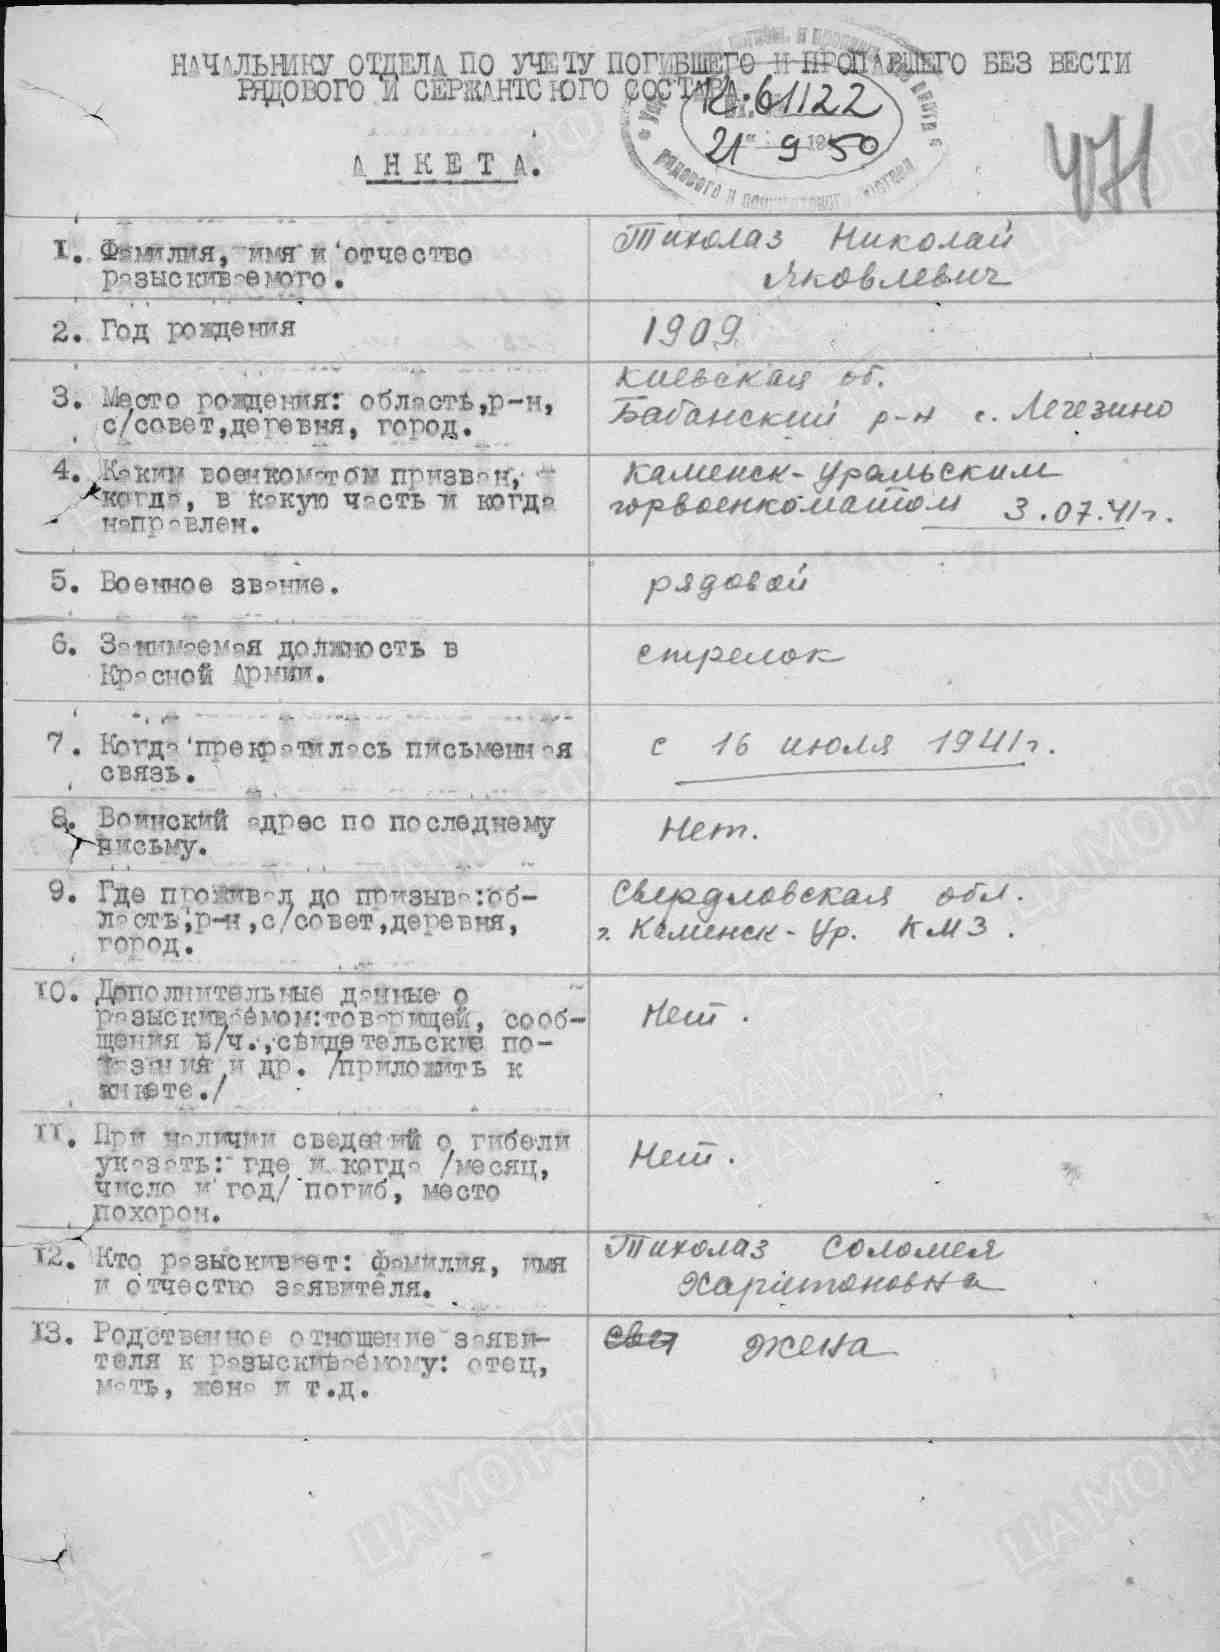 НАЧАЛЬНИКУ ОТДЕЛА ПО УЧЕТУ ПОГИБШЕГО И ПРОПАВШЕГО БЕЗ ВЕСТИ
РЯДОВОГО И СЕРЖАНТСКОГО СОСТАВА.
61122
21 9 1950
рядового и
471
АНКЕТА.
1. Фамилия, имя и отчество
разыскиваемого.
Тихолаз Николай
Яковлевич
2. Год рождения
1909
3. Место рождения: область,р-н,
с/совет,деревня, город.
Киевская об.
Бабанский р-н с. Легезино
4. Каким военкоматом призван,
когда, в какую часть и когда
направлен.
Каменск-Уральским
горвоенкоматом 3.07.41г.
5. Военное звание.
рядовой
6. Занимаемая должность в
Красной Армии.
стрелок
7. Когда прекратилась письменная
связь.
с 16 июля 1941г.
8. Воинский адрес по последнему
письму.
Нет.
9. Где проживал до призыва:об-
ласть,р-н,с/совет,деревня,
город.
Свердловская обл.
г. Каменск-Ур. КМЗ.
10. Дополнительные данные о
разыскиваемом:товарищей, сооб-
щения в/ч.,свидетельские по-
казания и др. /приложить к
анкете./
Нет.
11. При наличии сведений о гибели
указать: где и когда /месяц,
число и год/ погиб, место
похорон.
Нет.
12. Кто разыскивает: фамилия, имя
и отчество заявителя.
Тихолаз Соломея
Харитоновна
13. Родственное отношение заяви-
теля к разыскиваемому: отец,
мать, жена и т.д.
жена
ЦАМО.РФ
ПАМЯТЬ
НАРОДА